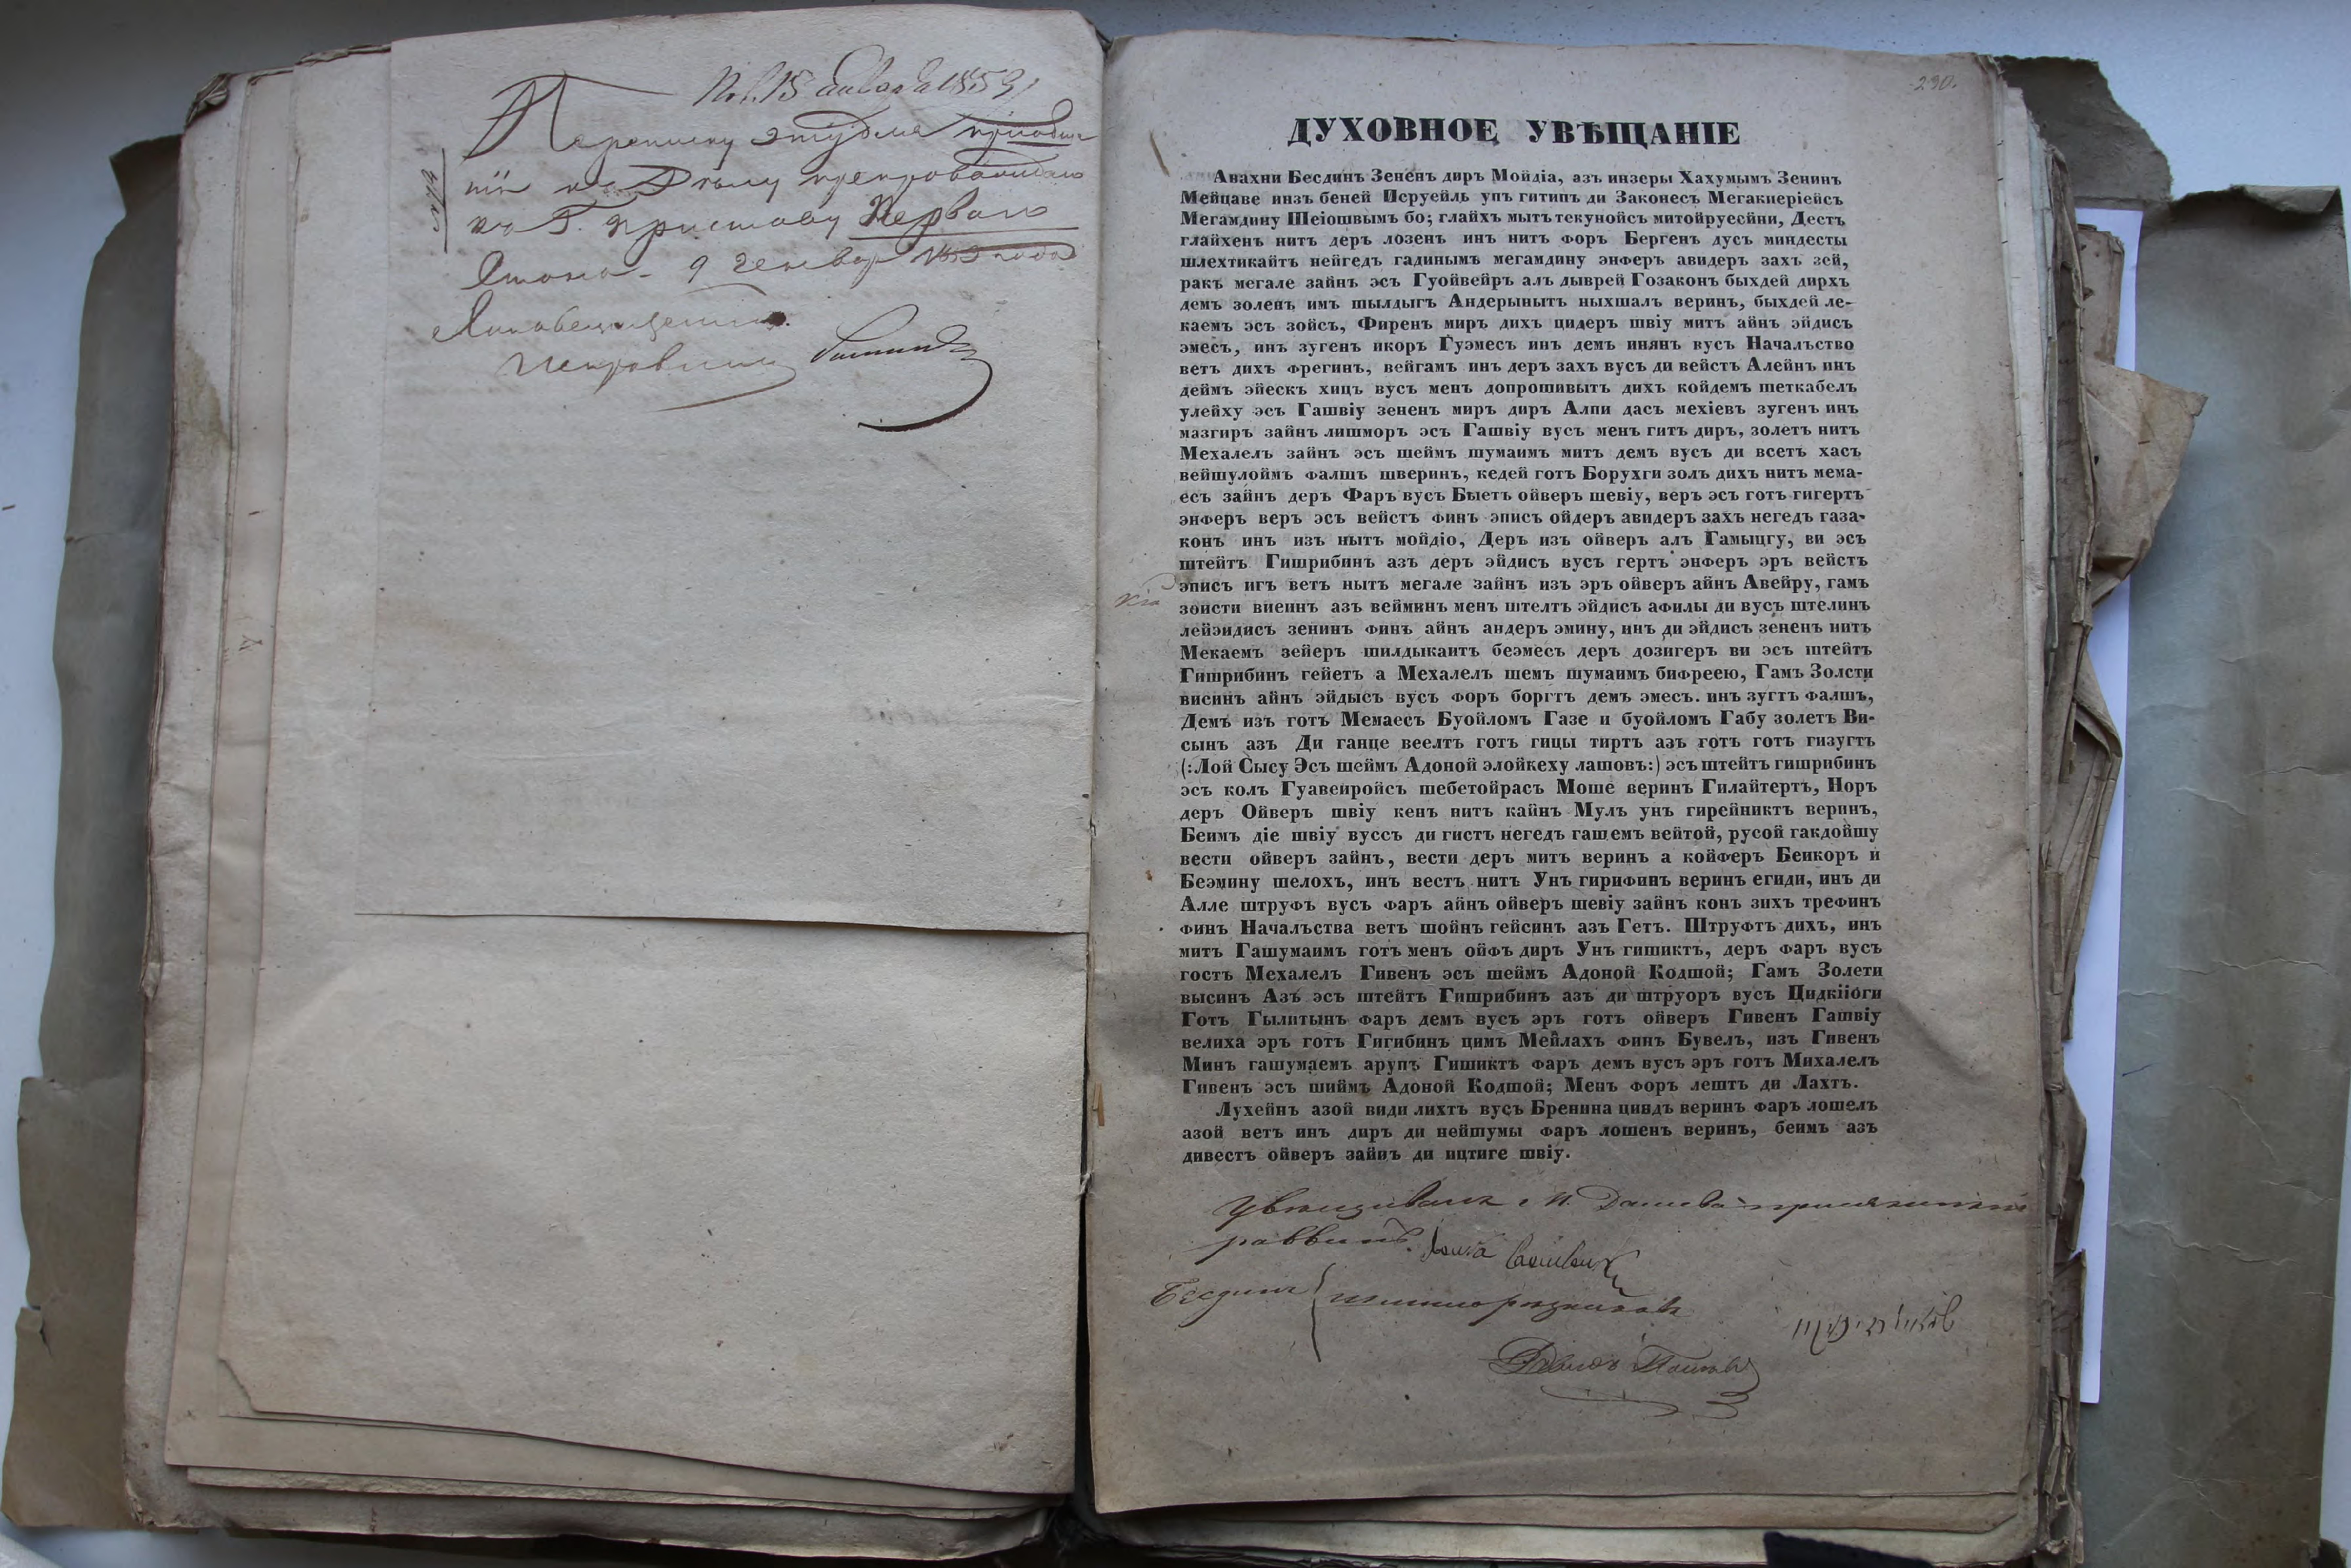 15 января 1853
Переписку эту для
къ Дѣлу препровождаю
къ Г. Приставу Перваго
Стана. 9 Генвар 1853 года
Исправникъ
230.
ДУХОВНОЕ УВѢЩАНІЕ
Анахни Бесдинъ Зененъ диръ Мойдіа, азъ инзеры Хахумымъ Зенинъ
Мейцаве инзъ беней Исруейль упъ гитипъ ди Законесъ Мегакиеріейсъ
Мегамдину Шеіошвымъ бо; глайхъ мытъ текунойсъ митойруесйни, Дестъ
глайхенъ нитъ деръ лозенъ инъ нитъ форъ Бергенъ дусъ миндесты
шлехтикайтъ нейгедъ гадинымъ мегамдину энферъ авидеръ захъ зей,
ракъ мегале зайнъ эсъ Гуойвейръ алъ дыврей Гозаконъ быхдей дирхъ
демъ золенъ имъ шылдыгъ Андерынытъ ныхшалъ веринъ, быхдей ле-
каемъ эсъ зойсъ, Фиренъ миръ дихъ цидеръ швіу митъ айнъ эйдисъ
эмесъ, инъ зугенъ икоръ Гуэмесъ инъ демъ инянъ вусъ Началъство
ветъ дихъ фрегинъ, вейгамъ инъ деръ захъ вусъ ди вейстъ Алейнъ инъ
деймъ эйескъ хицъ вусъ менъ допрошивытъ дихъ койдемъ шеткабелъ
улейху эсъ Гашвіу зененъ миръ диръ Алпи дасъ мехіевъ зугенъ инъ
мазгиръ зайнъ лишморъ эсъ Гашвіу вусъ менъ гитъ диръ, золетъ нитъ
Мехалелъ зайнъ эсъ шеймъ шумаимъ митъ демъ вусъ ди всетъ хасъ
вейшулоймъ фалшъ шверинъ, кедей готъ Борухги золъ дихъ нитъ мема-
есъ зайнъ деръ Фаръ вусъ Быетъ ойверъ шевіу, веръ эсъ готъ гигертъ
энферъ веръ эсъ вейстъ финъ эписъ ойдеръ авидеръ захъ негедъ газа-
конъ инъ изъ нытъ мойдіо, Деръ изъ ойверъ алъ Гамыцгу, ви эсъ
штейтъ Гишрибинъ азъ деръ эйдисъ вусъ гертъ энферъ эръ вейстъ
эписъ игъ ветъ нытъ мегале зайнъ изъ эръ ойверъ айнъ Авейру, гамъ
зоисти виеинъ азъ вейминъ менъ штелтъ эйдисъ афилы ди вусъ штелинъ
лейэидисъ зенинъ финъ айнъ андеръ эмину, инъ ди эйдисъ зененъ нитъ
Мекаемъ зейеръ шилдыкаитъ беэмесъ деръ дозигеръ ви эсъ штейтъ
Гишрибинъ гейетъ а Мехалелъ шемъ шумаимъ бифреею, Гамъ Золсти
висинъ айнъ эйдысъ вусъ форъ боргтъ демъ эмесъ. инъ зугтъ фалшъ,
Демъ изъ готъ Мемаесъ Буойломъ Газе и буойломъ Габу золетъ Ви-
сынъ азъ Ди ганце веелтъ готъ гицы тиртъ азъ готъ готъ гизугтъ
(:Лой Сысу Эсъ шеймъ Адоной элойкеху лашовъ:) эсъ штейтъ гишрибинъ
эсъ колъ Гуавеиройсъ шебетойрасъ Моше веринъ Гилайтертъ, Норъ
деръ Ойверъ швіу кенъ питъ кайнъ Мулъ унъ гирейниктъ веринъ,
Беимъ діе швіу вуссъ ди гистъ негедъ гашемъ вейтой, русой гакдойшу
вести ойверъ зайнъ, вести деръ митъ веринъ а койферъ Беикоръ и
Беэмину шелохъ, инъ вестъ нитъ Унъ гирифинъ веринъ егиди, инъ ди
Алле штруфъ вусъ фаръ айнъ ойверъ шевіу зайнъ конъ зихъ трефинъ
финъ Началъства ветъ шойнъ гейсинъ азъ Гетъ. Штруфтъ дихъ, инъ
митъ Гашумаимъ готъ менъ ойфъ диръ Унъ гишиктъ, деръ фаръ вусъ
гостъ Мехалелъ Гивенъ эсъ шеймъ Адоной Кодшой; Гамъ Золети
высинъ Азъ эсъ штейтъ Гишрибинъ азъ ди штруоръ вусъ Цидкііоги
Готъ Гылитынъ фаръ демъ вусъ эръ готъ ойверъ Гивенъ Гашвіу
велиха эръ готъ Гигибинъ цимъ Мейлахъ финъ Бувелъ, изъ Гивенъ
Минъ гашумаемъ арупъ Гишиктъ фаръ демъ вусъ эръ готъ Михалелъ
Гивенъ эсъ шиймъ Адоной Кодшой; Менъ форъ лештъ ди Лахтъ.
Лухейнъ азой види лихтъ вусъ Бренина циндъ веринъ фаръ лошелъ
азой ветъ инъ диръ ди нейшумы фаръ лошенъ веринъ, беимъ азъ
дивестъ ойверъ зайнъ ди ицтиге швіу.
Увѣщивалъ
раввинъ.
Бесдинъ